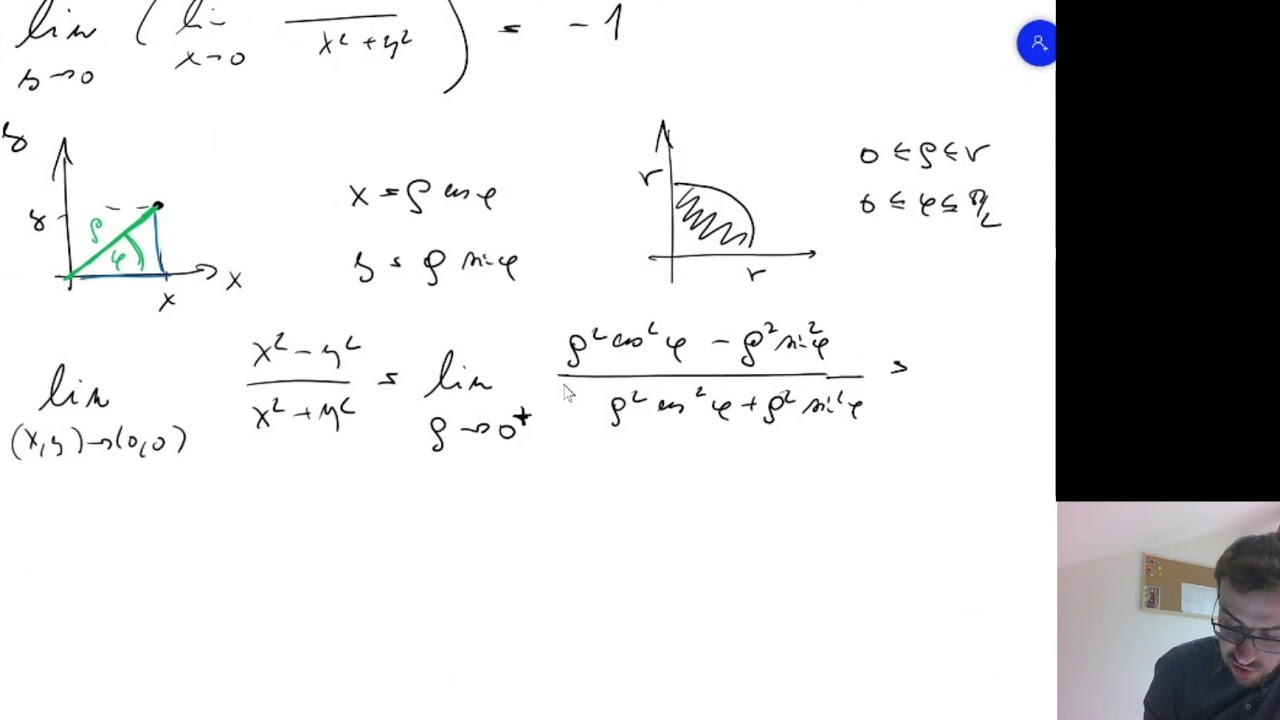 lim ( lim ―― / x² + y² ) = -1
y→0 x→0
y
y ρ φ
x x
x = ρ cos φ
y = ρ sin φ
r
r
0 ≤ ρ ≤ r
0 ≤ φ ≤ π/2
lim (x,y)→(0,0) (x² - y²)/(x² + y²) = lim ρ→0⁺ (ρ² cos² φ - ρ² sin² φ)/(ρ² cos² φ + ρ² sin² φ) =